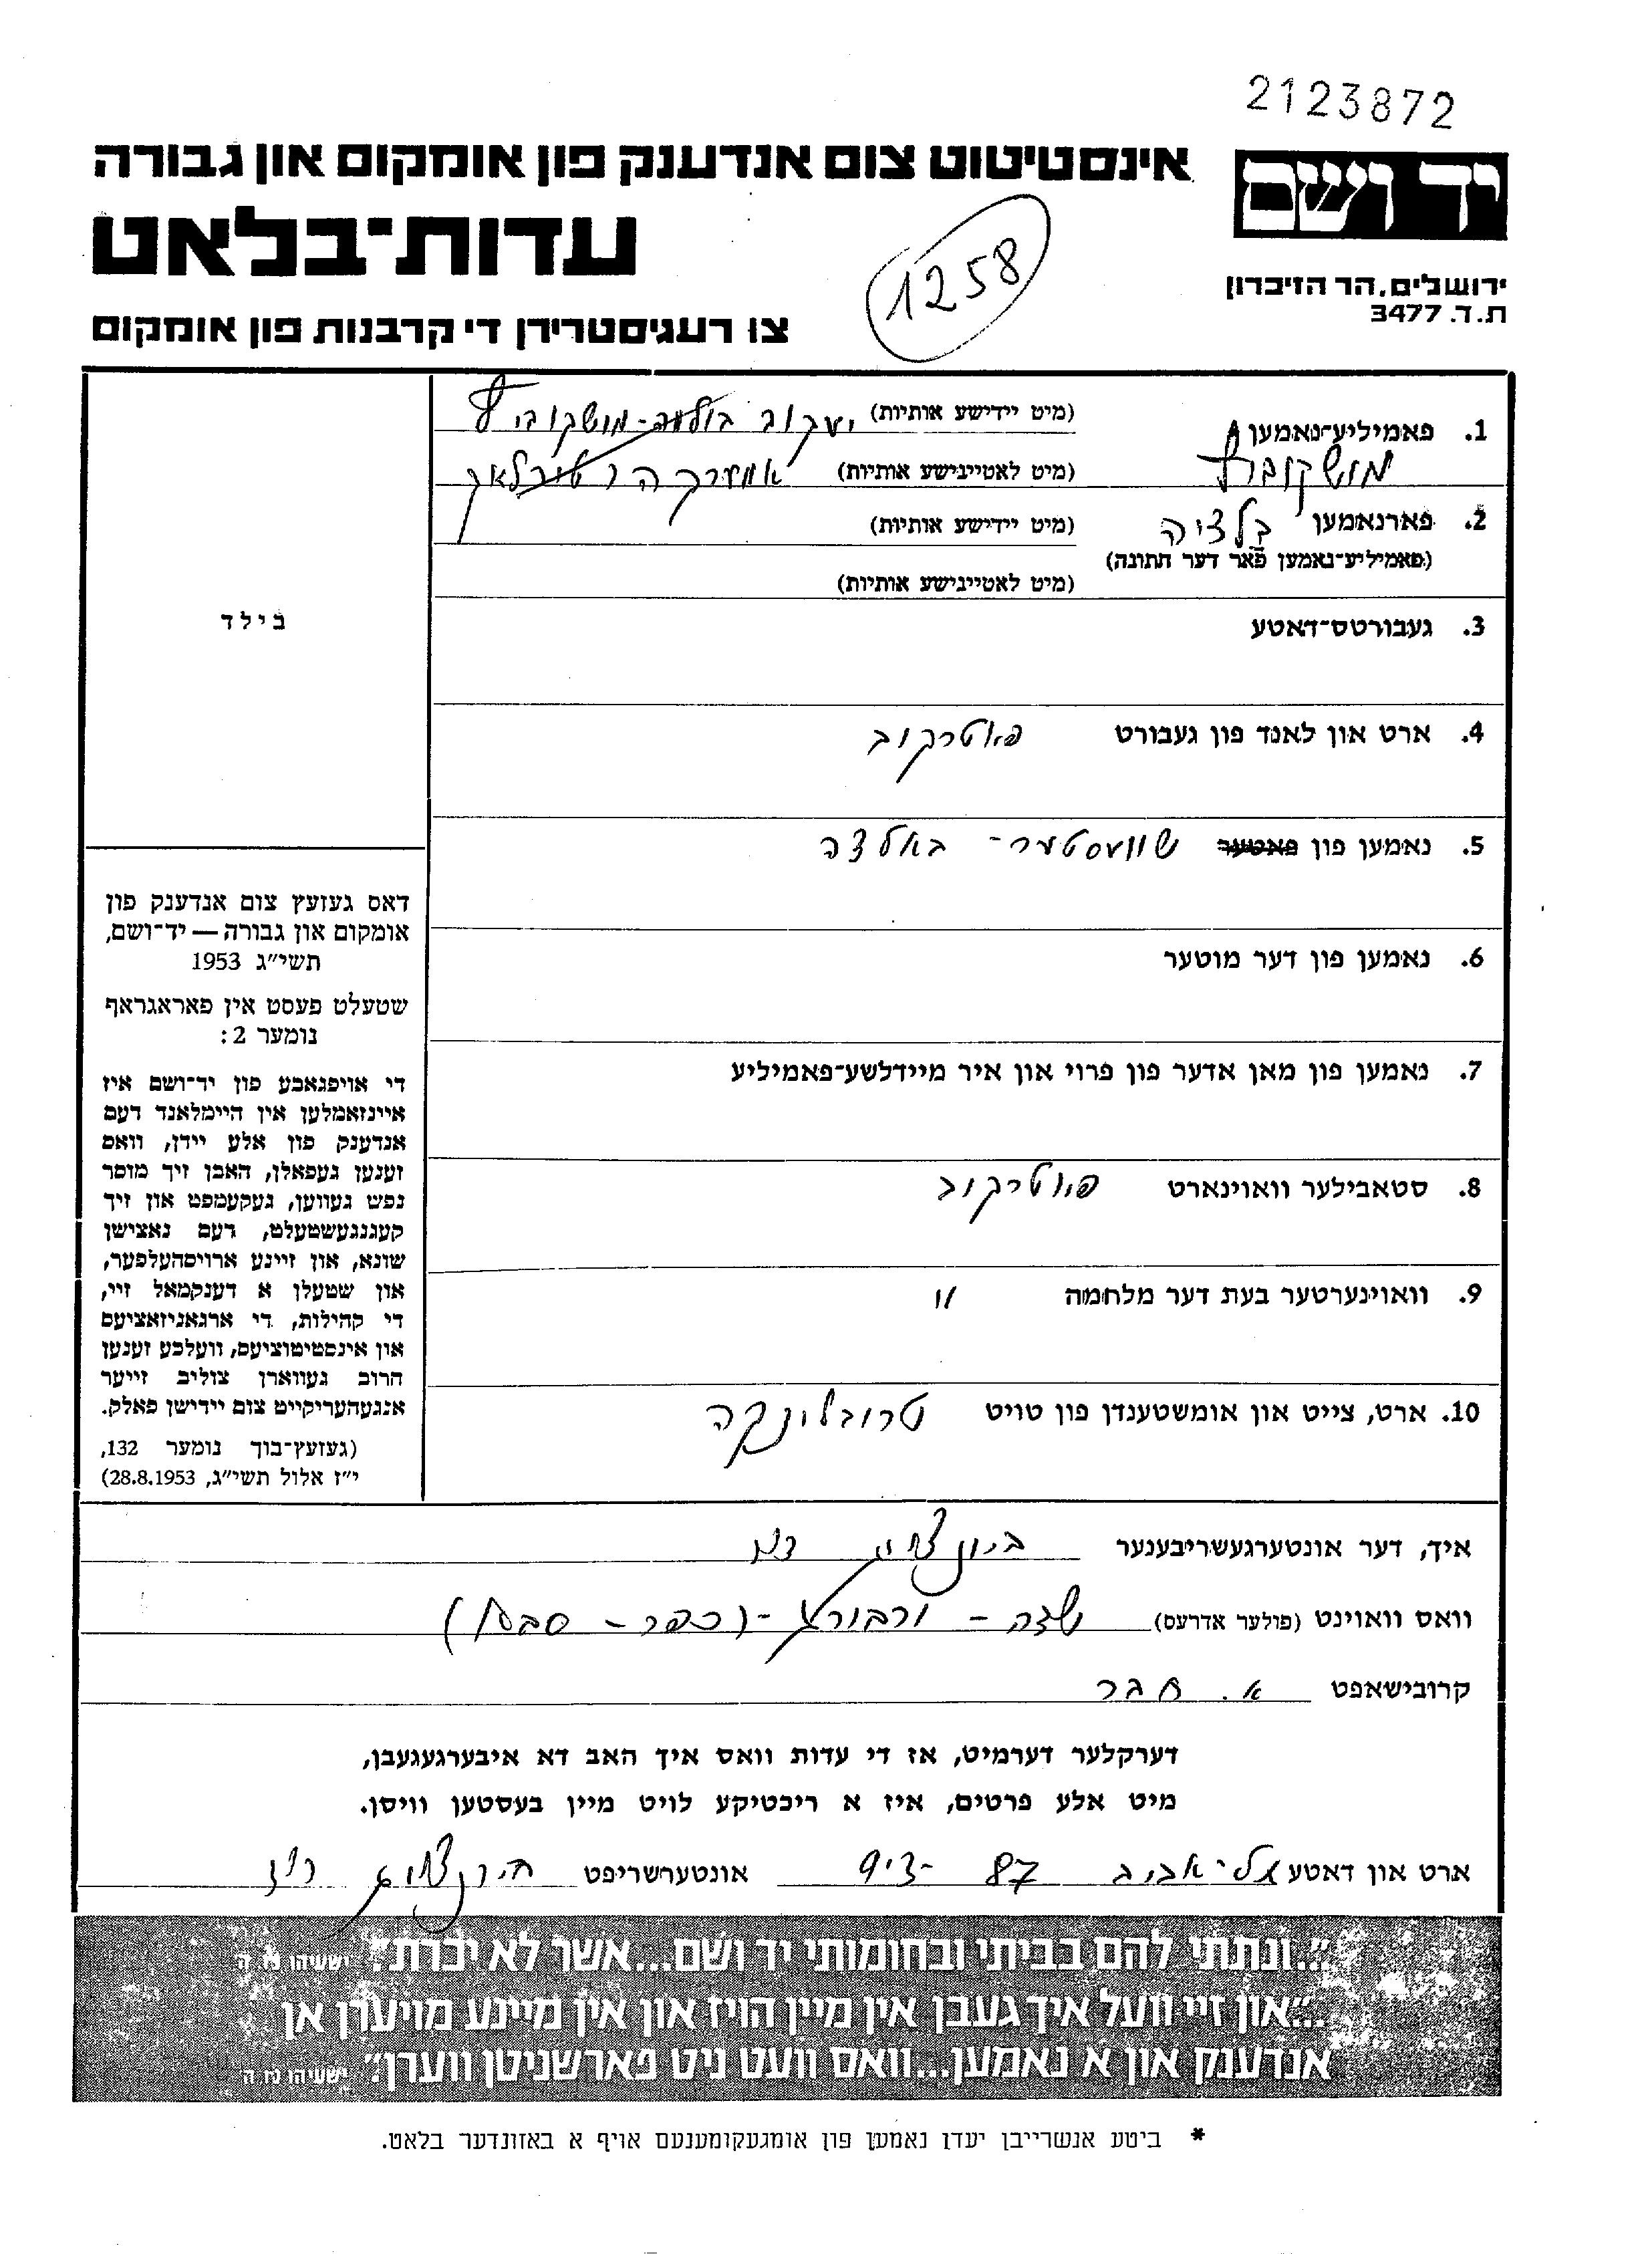 2123872
אינסטיטוט צום אנדענק פון אומקום און גבורה
יד ושם
עדות־בלאט
1258
ירושלים, הר הזיכרון
ת.ד. 3477
צו רעגיסטרירן די קרבנות פון אומקום
1. פאמיליע־נאמען
(מיט יידישע אותיות) יעקוב
(מיט לאטיינישע אותיות)
2. פארנאמען
(מיט יידישע אותיות)
(פאמיליע־נאמען פאר דער חתונה)
(מיט לאטיינישע אותיות)
בילד
3. געבורטס־דאטע
4. ארט און לאנד פון געבורט פאטרקוב
5. נאמען פון פאטער שוועסטער - באלצה
6. נאמען פון דער מוטער
7. נאמען פון מאן אדער פון פרוי און איר מיידלשע־פאמיליע
8. סטאבילער וואוינארט פאטרקוב
9. וואוינערטער בעת דער מלחמה "
10. ארט, צייט און אומשטענדן פון טויט טרובלינקה
דאס געזעץ צום אנדענק פון
אומקום און גבורה — יד־ושם,
תשי"ג 1953
שטעלט פעסט אין פאראגראף
נומער 2:
די אויפגאבע פון יד־ושם איז
איינזאמלען אין היימלאנד דעם
אנדענק פון אלע יידן, וואס
זענען געפאלן, האבן זיך מוסר
נפש געווען, געקעמפט און זיך
קעגנגעשטעלט, דעם נאצישן
שונא, און זיינע ארויסהעלפער,
און שטעלן א דענקמאל זיי,
די קהילות, די ארגאניזאציעס
און אינסטיטוציעס, וועלכע זענען
חרוב געווארן צוליב זייער
אנגעהעריקייט צום יידישן פאלק.
(געזעץ־בוך נומער 132,
י"ז אלול תשי"ג, 28.8.1953)
איך, דער אונטערגעשריבענער
וואס וואוינט (פולער אדרעס) שדה - ורבורג - (כפר - סבא)
קרובישאפט א. חבר
דערקלער דערמיט, אז די עדות וואס איך האב דא איבערגעגעבן,
מיט אלע פרטים, איז א ריכטיקע לויט מיין בעסטען וויסן.
ארט און דאטע תל-אביב 87 אונטערשריפט
"...ונתתי להם בביתי ובחומותי יד ושם...אשר לא יכרת." ישעיהו נו, ה
"...און זיי וועל איך געבן אין מיין הויז און אין מיינע מויערן אן
אנדענק און א נאמען...וואס וועט ניט פארשניטן ווערן." ישעיהו נו, ה
* ביטע אנשרייבן יעדן נאמען פון אומגעקומענעם אויף א באזונדער בלאט.